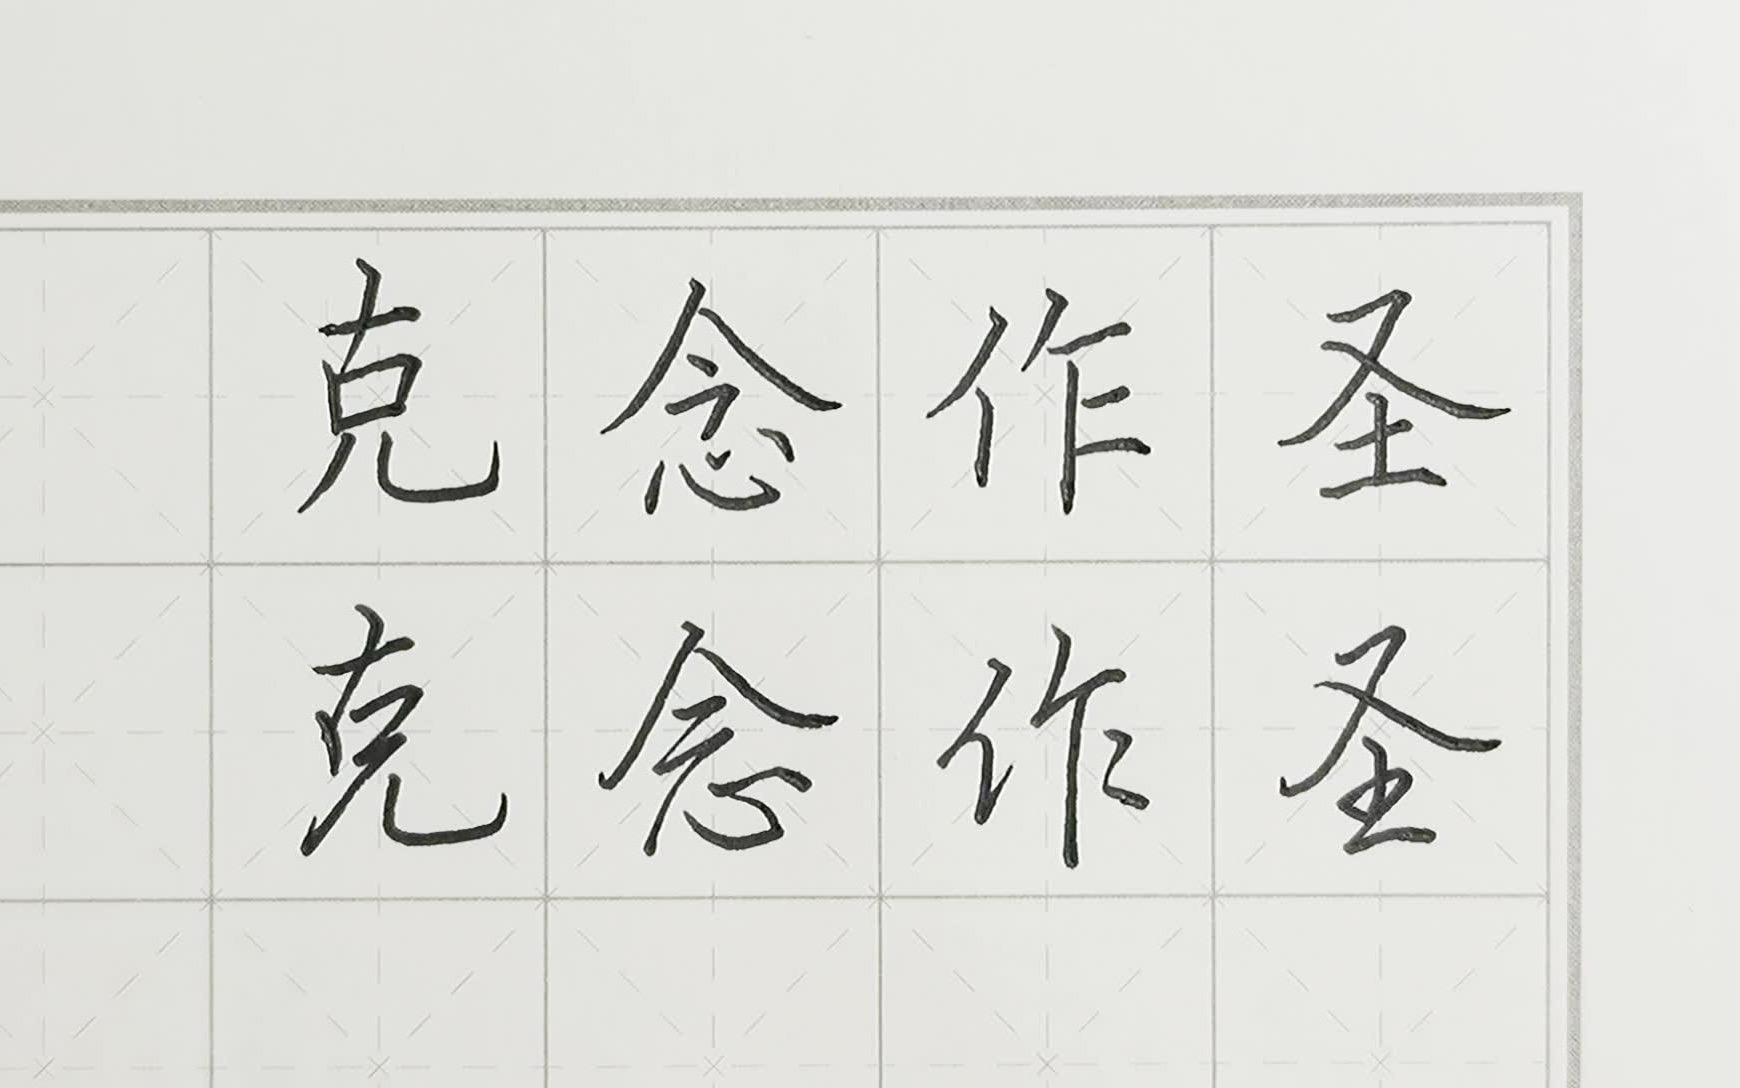 克念作圣
克念作圣